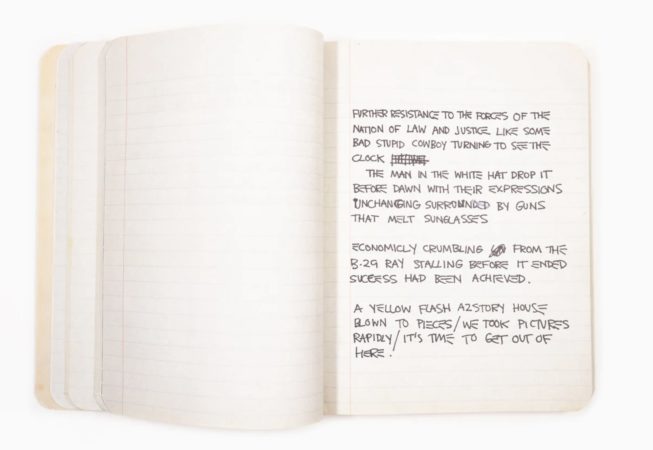 FURTHER RESISTANCE TO THE FORCES OF THE
NATION OF LAW AND JUSTICE LIKE SOME
BAD STUPID COWBOY TURNING TO SEE THE
CLOCK
THE MAN IN THE WHITE HAT DROP IT
BEFORE DAWN WITH THEIR EXPRESSIONS
UNCHANGING SURROUNDED BY GUNS
THAT MELT SUNGLASSES
ECONOMICLY CRUMBLING FROM THE
B-29 RAY STALLING BEFORE IT ENDED
SUCCESS HAD BEEN ACHIEVED.
A YELLOW FLASH A2STORY HOUSE
BLOWN TO PIECES/WE TOOK PICTURES
RAPIDLY/IT'S TIME TO GET OUT OF
HERE.